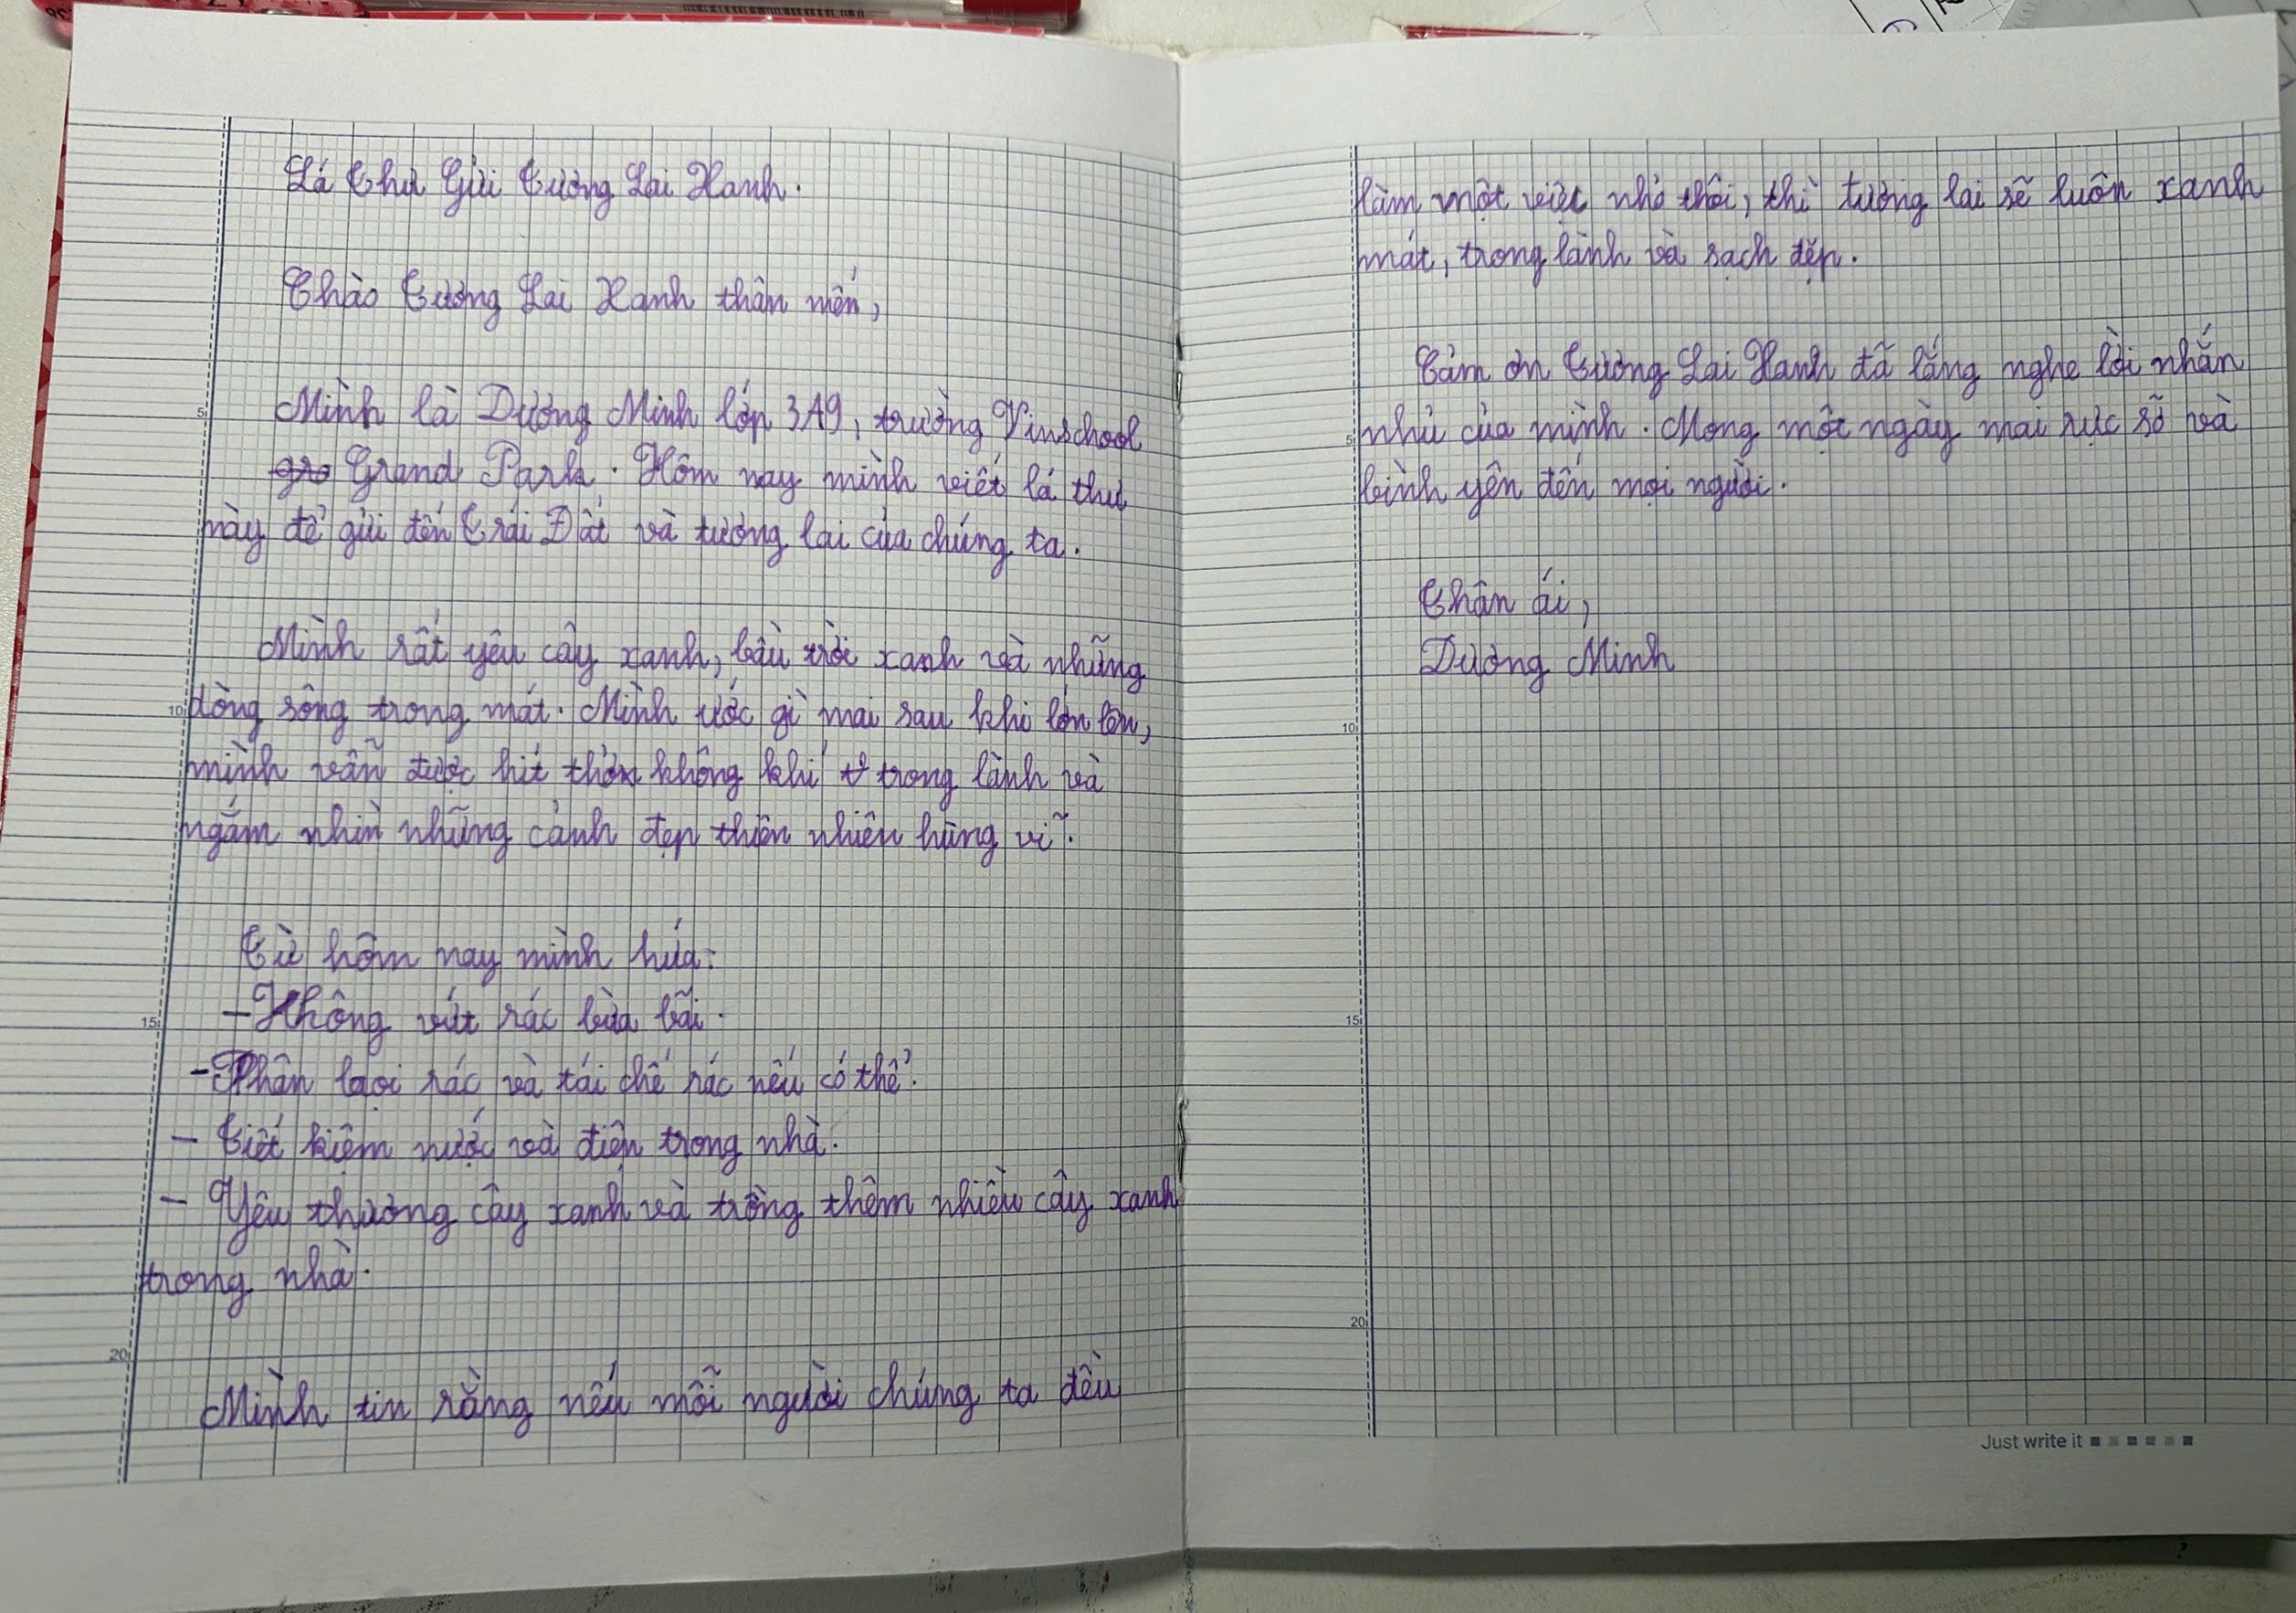 Lá Thư Gửi Tương Lai Xanh.
Chào Tương Lai Xanh thân mến,
Mình là Dương Minh lớp 3A9, trường Vinschool
gra Grand Park. Hôm nay mình viết lá thư
này để gửi đến Trái Đất và tương lai của chúng ta.
Mình rất yêu cây xanh, bầu trời xanh và những
dòng sông trong mát. Mình ước gì mai sau khi lớn lên,
mình vẫn được hít thở không khí t trong lành và
ngắm nhìn những cảnh đẹp thiên nhiên hùng vĩ.
Từ hôm nay mình hứa:
- Không vứt rác bừa bãi.
- Phân lạoi rác và tái chế rác nếu có thể.
- Tiết kiệm nước và điện trong nhà.
- Yêu thương cây xanh và trồng thêm nhiều cây xanh
trong nhà.
Mình tin rằng nếu mỗi người chúng ta đều
làm một việc nhỏ thôi, thì tương lai sẽ luôn xanh
mát, trong lành và sạch đẹp.
Cảm ơn Tương Lai Xanh đã lắng nghe lời nhắn
nhủ của mình. Mong một ngày mai rực sỡ và
bình yên đến mọi người.
Thân ái,
Dương Minh
5
10
15
20
5
10
15
20
Just write it